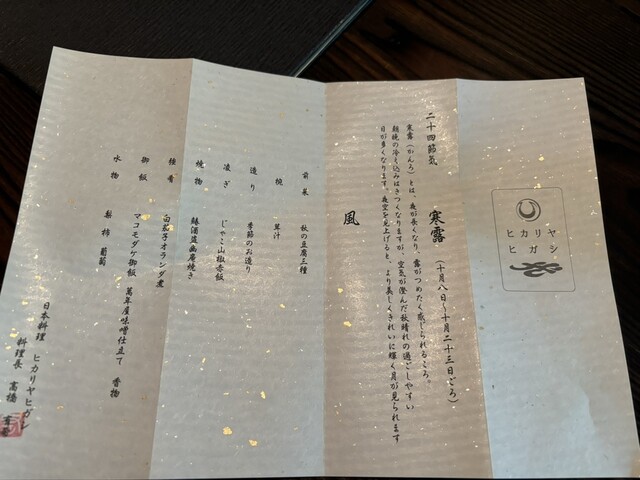 ヒカリヤ
ヒガシ
二十四節気
寒露（十月八日～十月二十三日ごろ）
寒露（かんろ）とは、夜が長くなり、露がつめたく感じられるころ。
朝晩の冷え込みはきつくなりますが、空気が澄んだ秋晴れの過ごしやすい
日が多くなります。夜空を見上げると、より美しくきれいに輝く月が見られます
風
前菜 秋の豆腐三種
椀 呉汁
造り 季節のお造り
凌ぎ じゃこ山椒赤飯
焼物 鰆酒盗幽庵焼き
強肴 白茄子オランダ煮
御飯 マコモダケ御飯 萬年屋味噌仕立て 香物
水物 梨 柿 葡萄
日本料理 ヒカリヤ ヒガシ
料理長 高橋